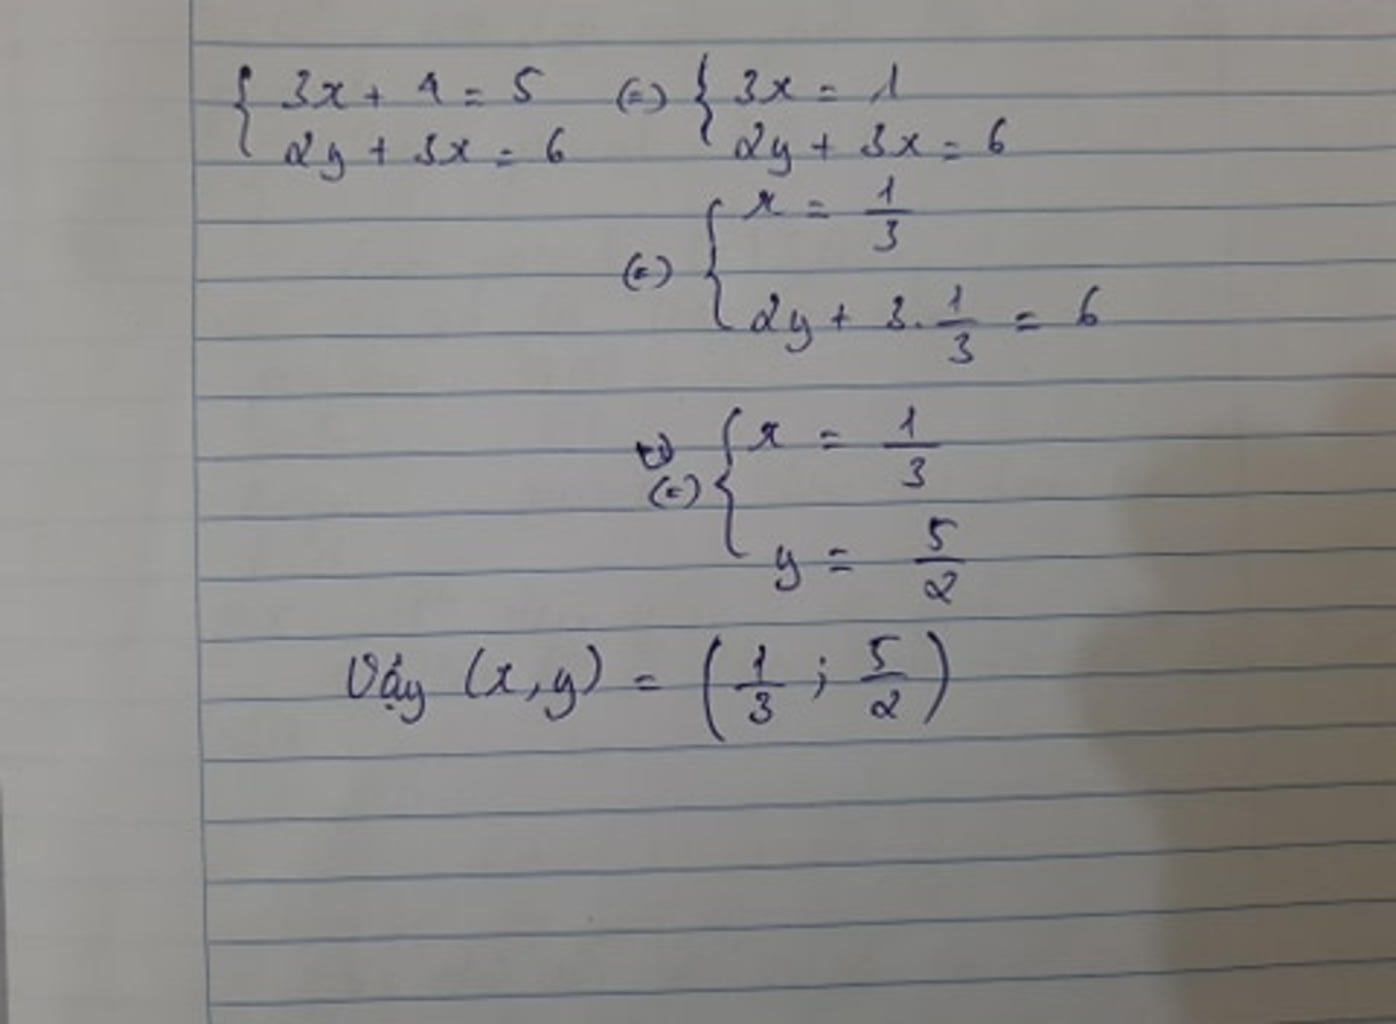 { 3x + 4 = 5 (=) { 3x = 1
2y + 3x = 6 2y + 3x = 6
(=) { x = 1/3
2y + 3. 1/3 = 6
(=) { x = 1/3
y = 5/2
Vậy (x, y) = (1/3 ; 5/2)